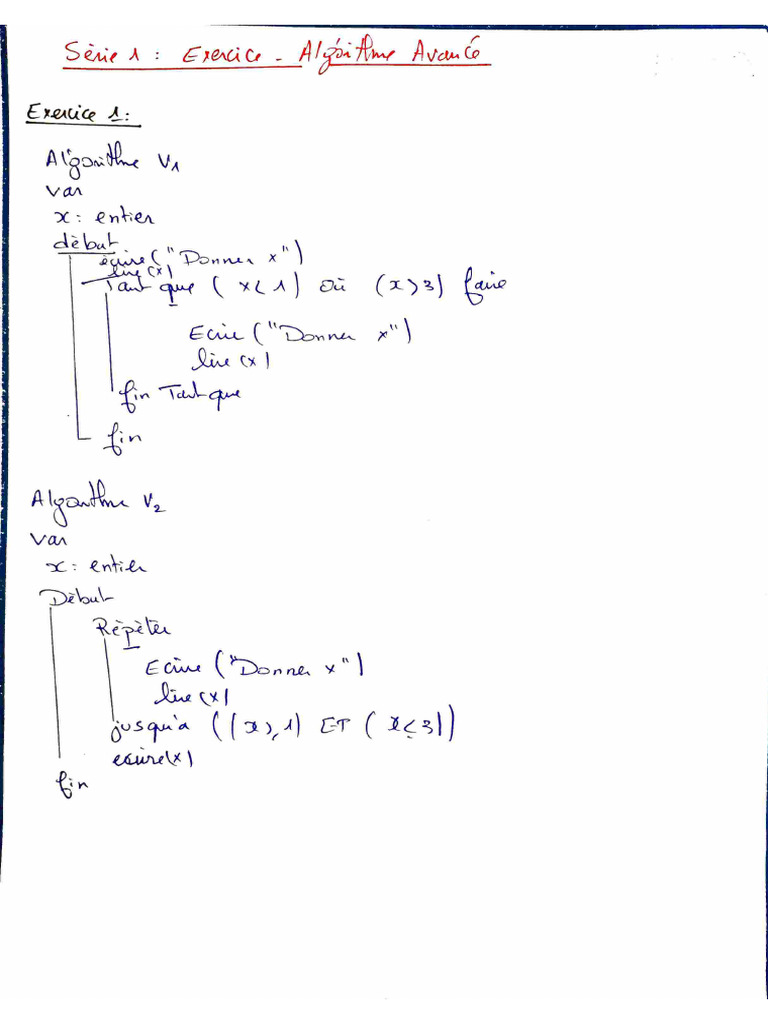 Série 1 : Exercice - Algorithme Avancé
Exercice 1:
Algorithme V1
var
x : entier
début
écrire("Donner x")
lire(x)
Tant que ( x < 1) où (x > 3) faire
Ecrire ("Donner x")
lire(x)
fin Tantque
fin
Algorithme V2
var
x : entier
Début
Rèpèter
Ecrire ("Donner x")
lire(x)
jusqu'a ((x ≥ 1) ET (x ≤ 3))
ecrire(x)
fin